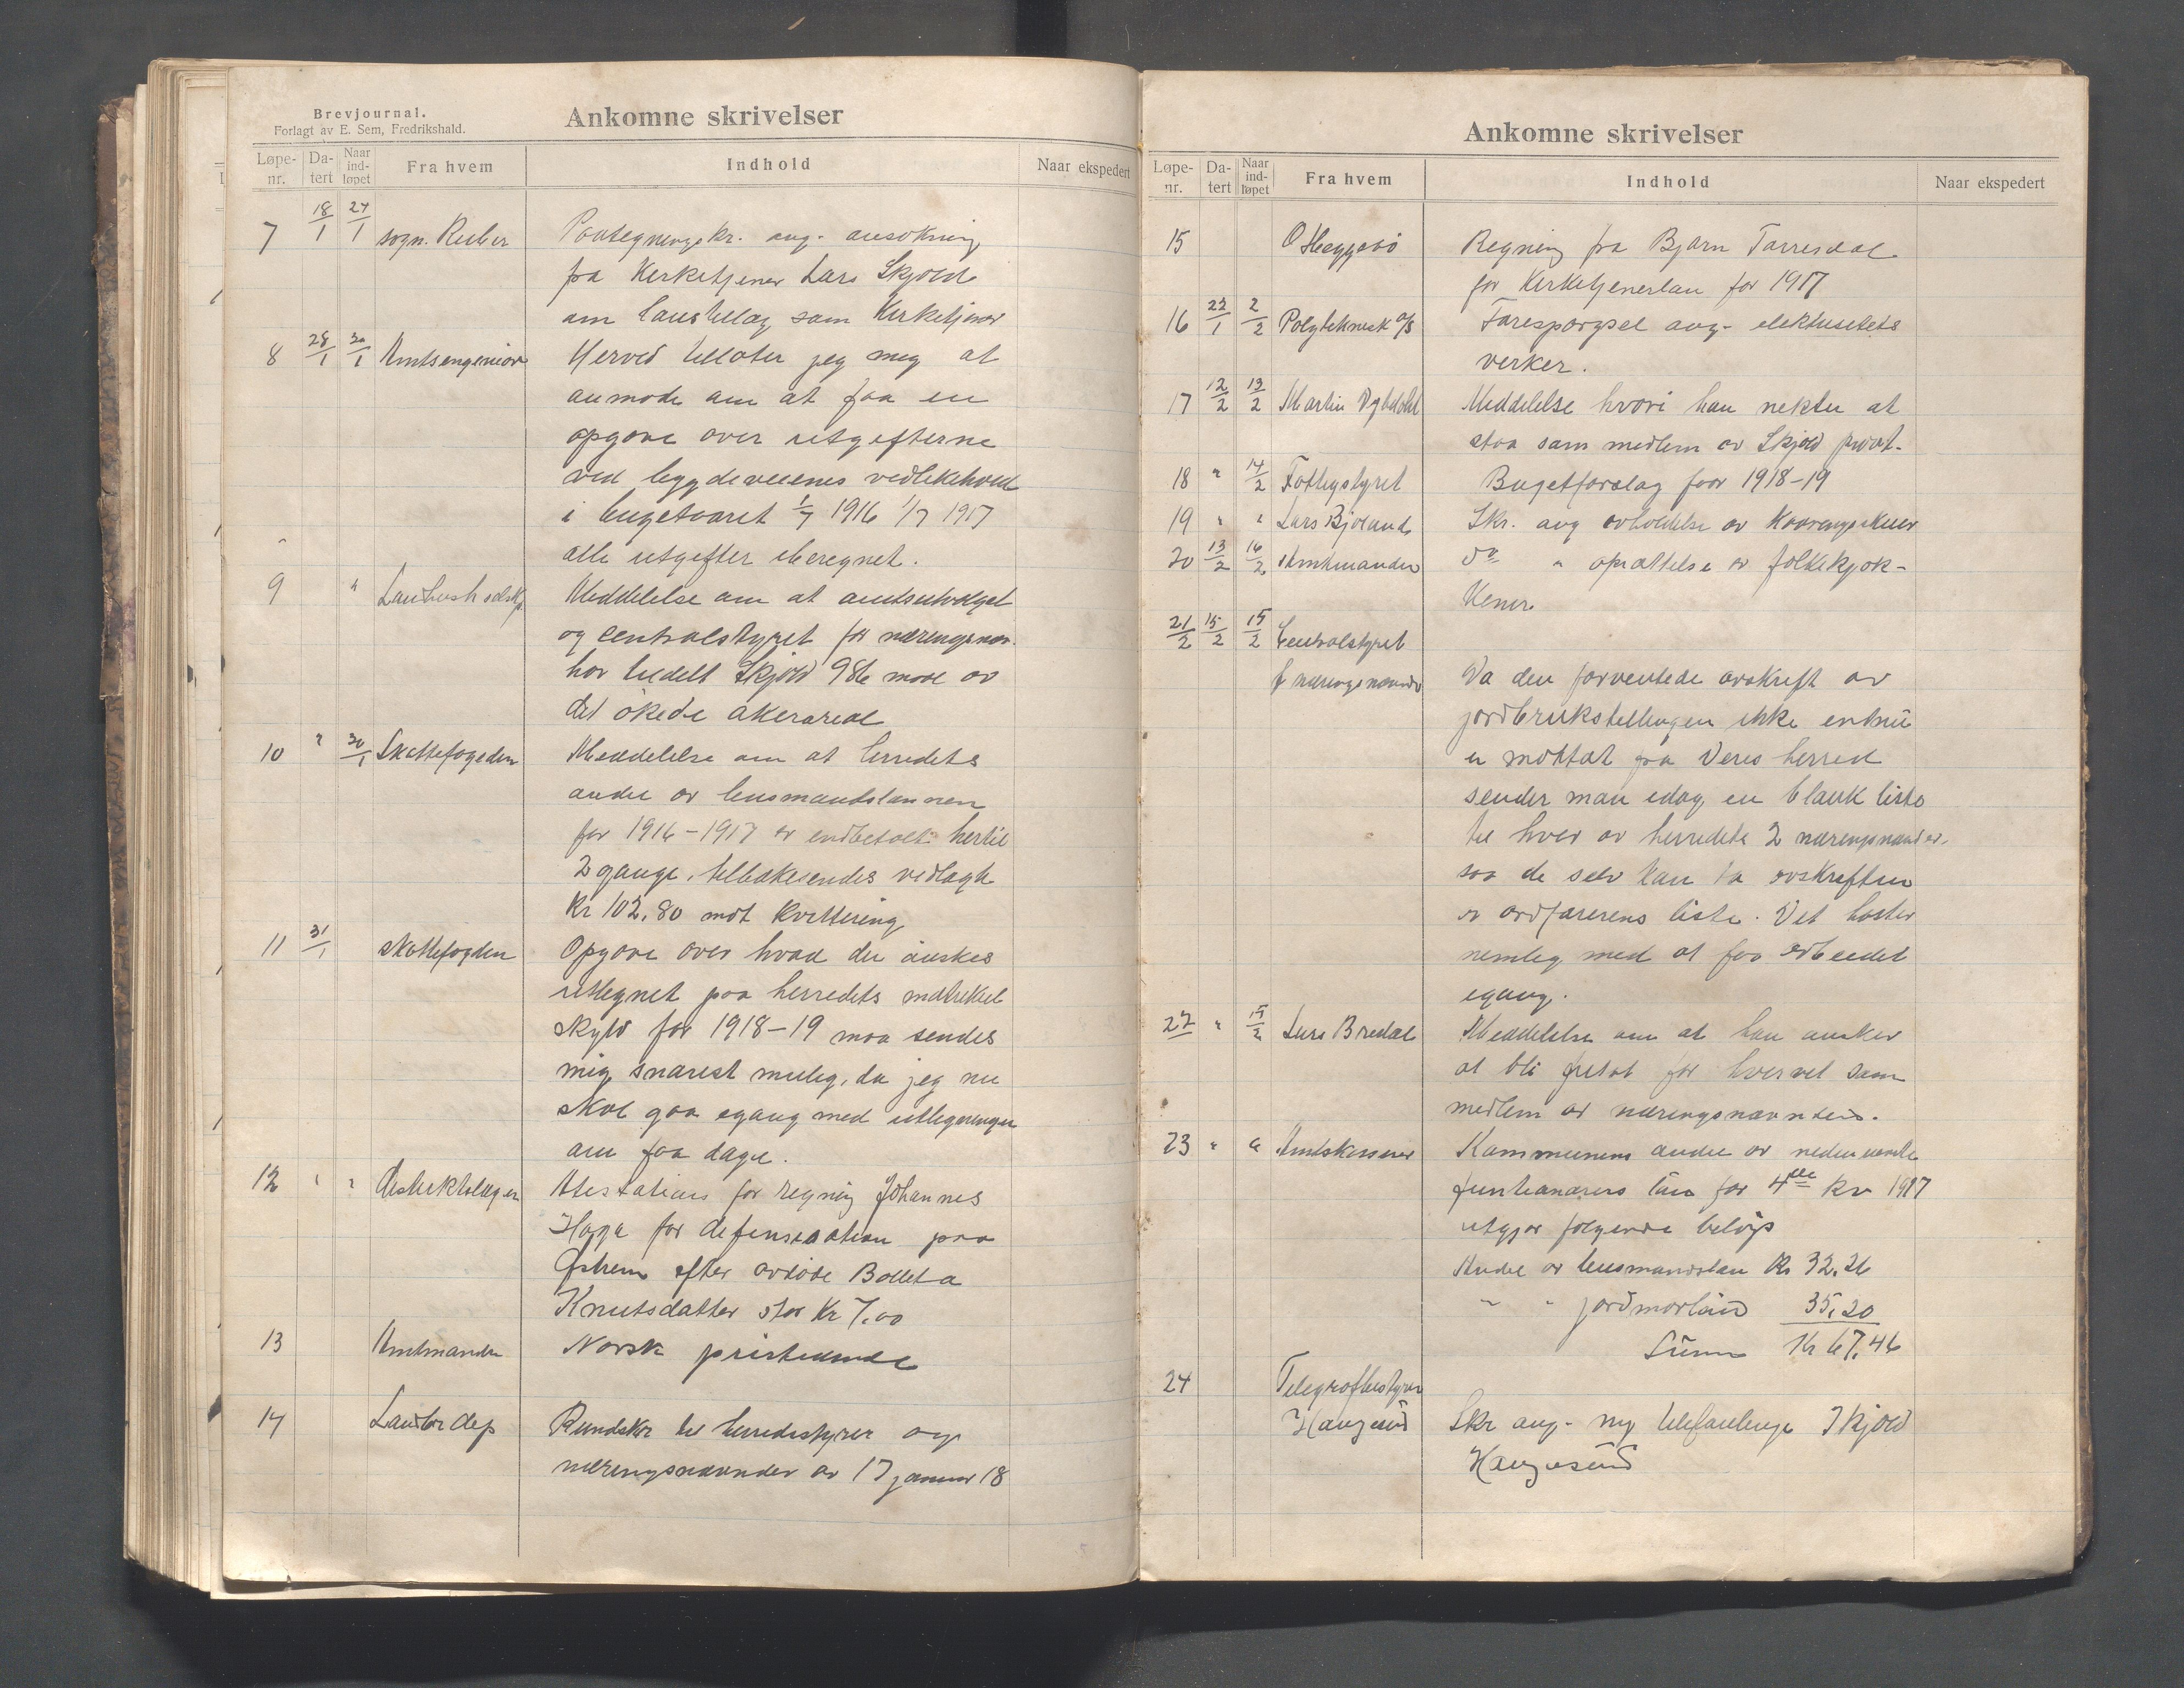 Brevjournal.
Forlagt av E. Sem, Fredrikshald.
Ankomne skrivelser
Løpe-nr. Da-tert Naar ind-løpet Fra hvem Indhold Naar ekspedert
7 18/1 27/1 sogn. Paategningskr. ang. ansökning
fra Kirketjener Lars Skjold
om lønstillæg som Kirketjener
8 28/1 30/1 Amtsengeniør Herved tillater jeg meg at
anmode om at faa en
opgave over utgifterne
ved bygdeveienes vedlikehold
i bugetaaret 1/7 1916 1/7 1917
alle utgifter iberegnet.
9 " Meddelelse om at amtsutvalget
og centralstyret for næringsnev.
har tildelt Skjold 986 maal av
det økede akerareal
10 " 30/1 Skattefogeden Meddelelse om at herredets
andel av lensmandslønnen
for 1916-1917 er indbetalt hertil
2 gange. tilbakesendes vedlagte
Kr 102,80 mot kvittering
11 31/1 skattefogden Opgave over hvad der ønskes
utlignet paa herredets matrikul
skyld for 1918-19 maa sendes
mig snarest mulig, da jeg nu
skal gaa igang med utligningen
om faa dage.
12 " " distriktslægen Atestation for regning Johannes
Haga for paa
efter avdøde Bolleta
Knutsdatter stor Kr 7.00
13 Amtmanden Norsk pristidende
14 Landbr dep Rundskr til herredsstyrer og
næringsnævnder av 17 januar 18
Ankomne skrivelser
Løpe-nr. Da-tert Naar ind-løpet Fra hvem Indhold Naar ekspedert
15 O Heggebö Regning fra Bjørn Tarresdal
for Kirketjenerløn for 1917
16 22/1 2/2 Polyteknisk A/S Forespørgsel ang. elektrisitets
verker.
17 12/2 13/2 Martin Meddelelse hvori han nekter at
staa som medlem av Skjold provt.
18 " 14/2 Fattigstyret Bugetforslag for 1918-19
19 " " Lars Bjoland Skr. ang avholdelse av
20 13/2 16/2 Amtmanden do " oprettelse av folkekjøk-
kener
21/2 15/2 15/2 Centralstyret
f næringsnævnder Da den forventede avskrift av
jordbrukstellingen ikke endnu
er mottat fra Deres herred
sender man idag en blank liste
til hver av herredets 2 næringsnævnder.
saa de selv kan ta avskriften
av ordførerens liste. Det haster
nemlig med at faa arbeidet
igang.
22 " 15/2 Lars Bredal Meddelelse om at han ønsker
at bli fritat for hvervet som
medlem av næringsnævnden.
23 " " Amtskasserer Kommunens andel av nedennevnte
funktionærers løn for 4de kv 1917
utgjør følgende beløp
Andel av lensmandsløn Kr 32.26
" " jordmorløn 35,20
Sum Kr 67,46
24 Telegrafbestyrer
Haugesund Skr ang. ny telefonlinje Skjold
Haugesund